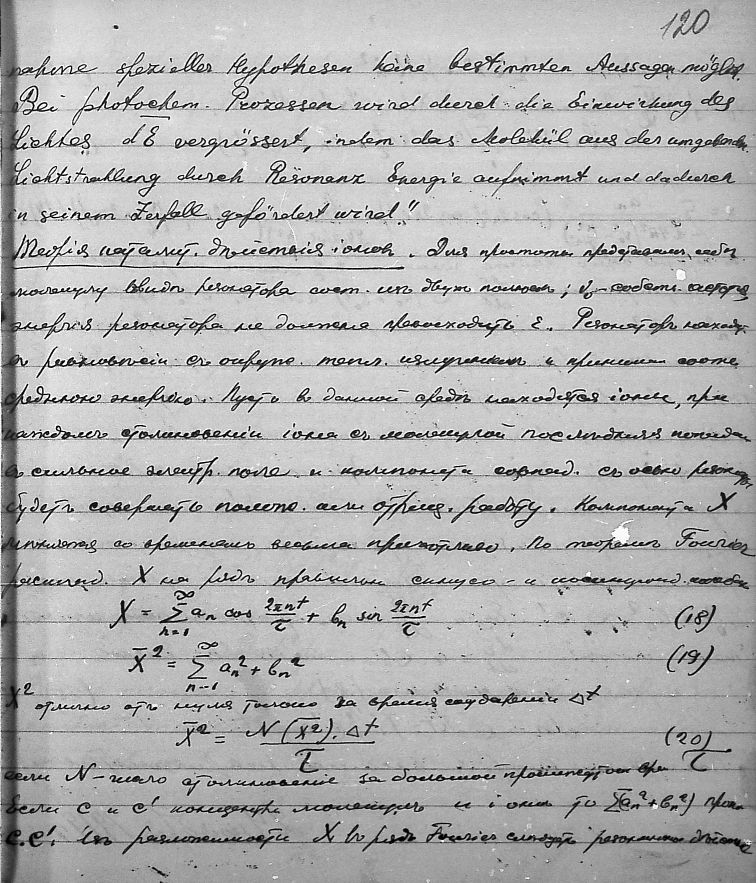 120
nahme spezieller Hypothesen keine bestimmten Aussagen möglich.
Bei photochem. Prozessen wird durch die Einwirkung des
Lichtes dE̅ vergrössert, indem das Molekül aus der umgebenden
Lichtstrahlung durch Resonanz Energie aufnimmt und dadurch
in seinem Zerfall gefördert wird"
Теорія катали. дѣйствія іоновъ. Для простоты представимъ себѣ
молекулу ввидѣ резонатора сост. изъ двухъ полюсовъ; ν₀ - собств. частота
энергія резонатора не должна превосходить ε. Резонаторъ находи
въ равновѣсіи съ окруж. тепл. излученіемъ и
среднюю энергію. Пусть въ данной средѣ находятся іоны, при
каждомъ столкновеніи іона съ молекулой послѣдняя попадаетъ
въ сильное электр. поле и компонента совпад. съ осью резонат.
будетъ совершать полож. или отриц. работу. Компонента X
мѣняется со временемъ весьма прихотливо. По теоремѣ Fourier
X на рядъ правильн. синусо- и
X = Σ_{n=1}^{∞} a_n cos 2πnt/τ + b_n sin 2πnt/τ (18)
X̅² = Σ_{n=1}^{∞} a_n² + b_n² (19)
X² отлично отъ нуля только за время соударенія Δt
X̅² = N(X̅²).Δt / τ (20)
τ
если N - число столкновеній за большой промежутокъ вре
Если c и c' концентр. молекулъ и іоновъ то Σ(a_n² + b_n²) проп.
c.c'. Изъ разложимости X въ рядъ Fourier слѣдуетъ резонансн. дѣйствіе